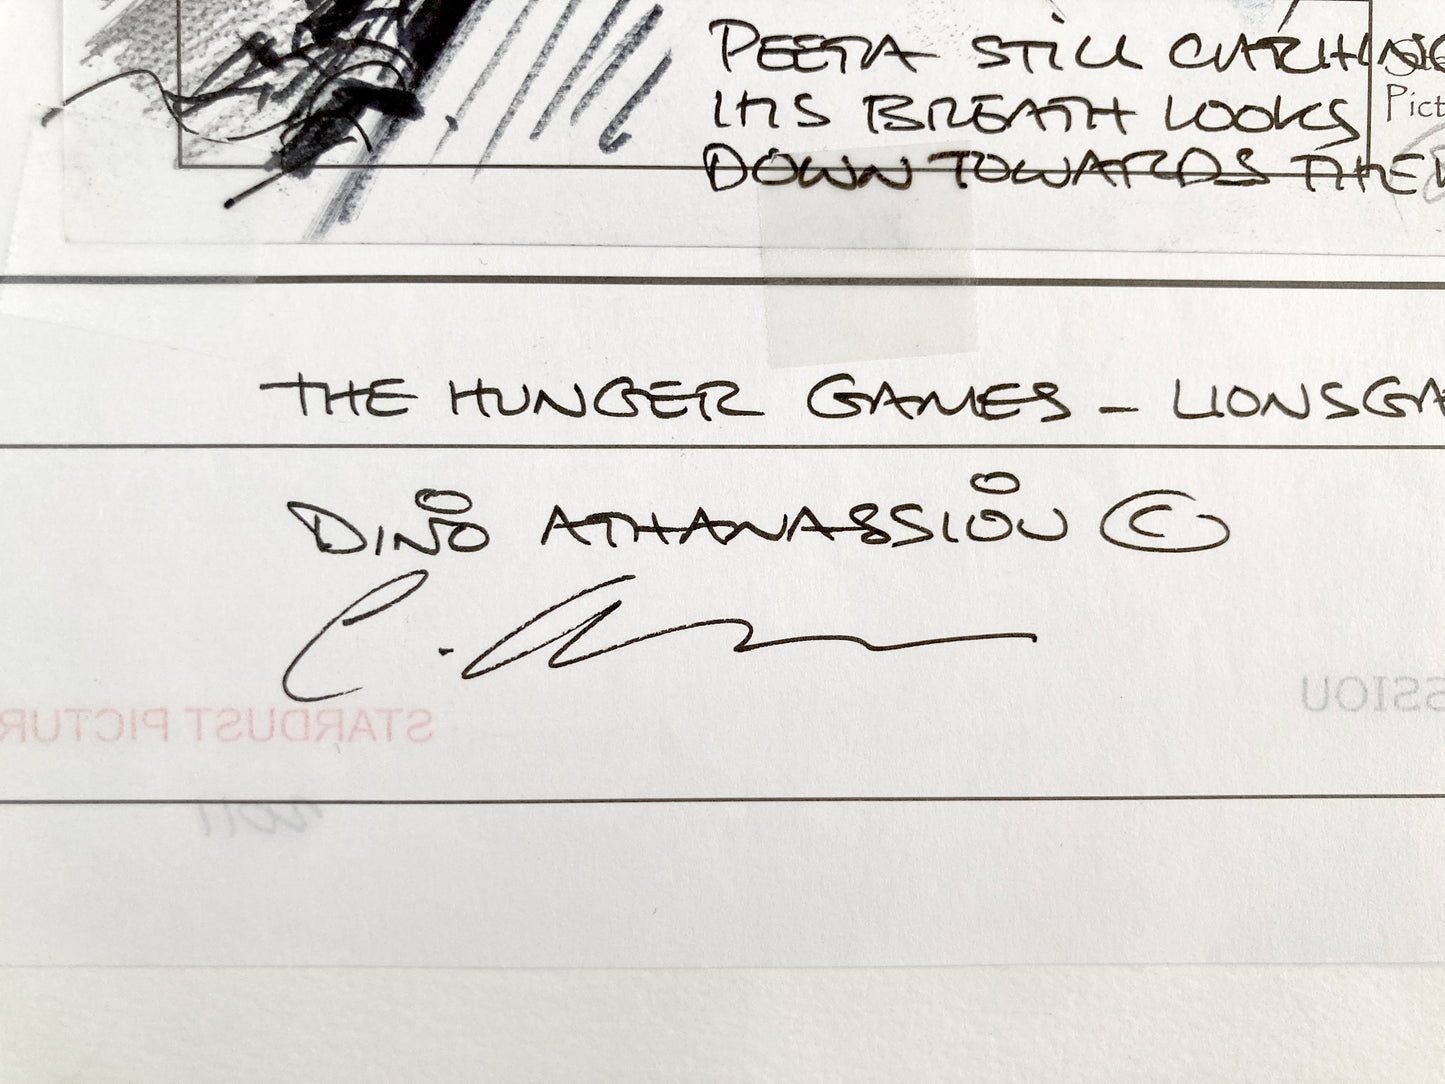 PEETA STILL CATCHING
HIS BREATH LOOKS
Pict
DOWN TOWARDS THE
THE HUNGER GAMES - LIONSGA
DINO ATHANASSIOU ©
SSIOU
STARDUST PICTUR